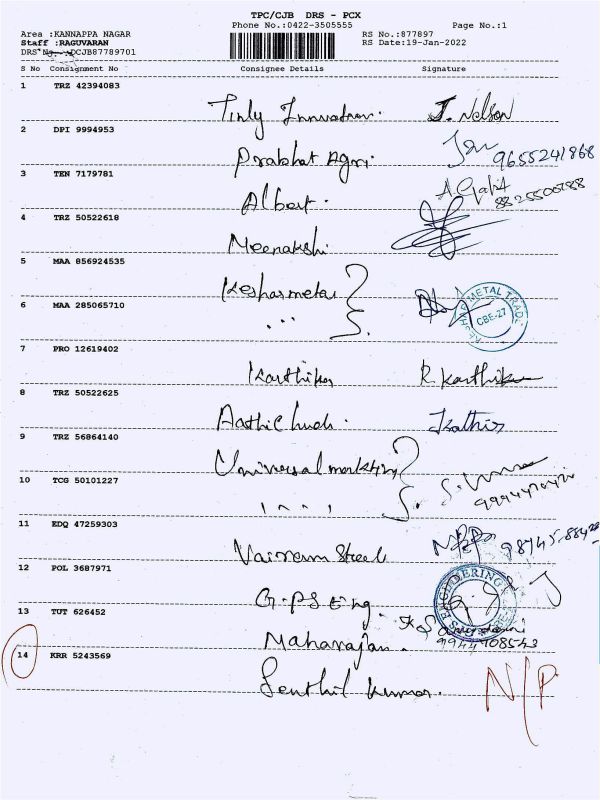 TPC/CJB DRS - PCX
Phone No.:0422-3505555 Page No.:1
Area :KANNAPPA NAGAR RS No.:877897
Staff :RAGUVARAN RS Date:19-Jan-2022
DRS No. DCJB87789701
S No Consignment No Consignee Details Signature
1 TRZ 42394083
Tinly Innovation. J. Nelson
2 DPI 9994953
Prabhat Agri. 9655241868
3 TEN 7179781
Albert.
4 TRZ 50522618
Meenakshi
5 MAA 856924535
Kesharmetal
METAL TRAD
CBE-27
6 MAA 285065710
7 PRO 12619402
Karthika R. Karthika
8 TRZ 50522625
Kathir
9 TRZ 56864140
Universal marketing
10 TCG 50101227
11 EDQ 47259303
Vairam Steel
12 POL 3687971
G.P.S Eng.
ENGINEERING
13 TUT 626452
Maharajan. 9944908543
14 KRR 5243569
Senthil Kumar. N/P.